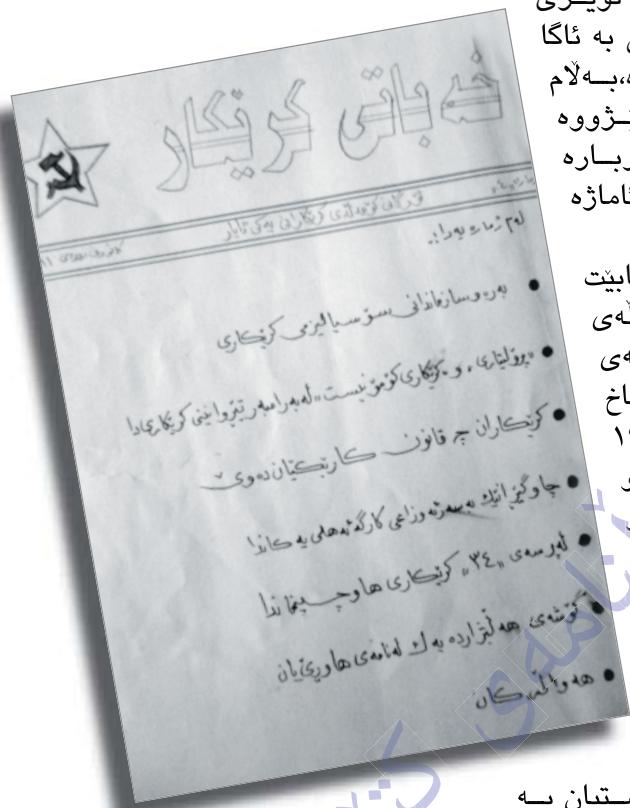 تویـژی
بە ئاگا
ە،بــەڵام
ـژووە
ربــارە
ئاماژە
ابێت
ڵەی
ەی
اخ
و
خەباتی کرێکار
ئۆرگانی کۆمەڵەی کرێکارانی یەکی ئایار
لەم ژمارەیەدا:
● بەرەو سازماندانی سۆسیالیزمی کرێکاری
● «پرۆلیتاری» و «کرێکاری کۆمۆنیست» لەبەرامبەر تێڕوانینی کرێکاریدا
● کرێکاران چ قانون کارێکیان دەوێ
● چاوگێڕانێک بەسەر ئەوزاعی کارگە ئەهلی یەکاندا
● لەپرسەی «٣٤» کرێکاری هاوچـ
● گۆشەی هەڵبژاردە یەک لەنامەی هاوڕێیان
● هەواڵەکان
ستیان بــە